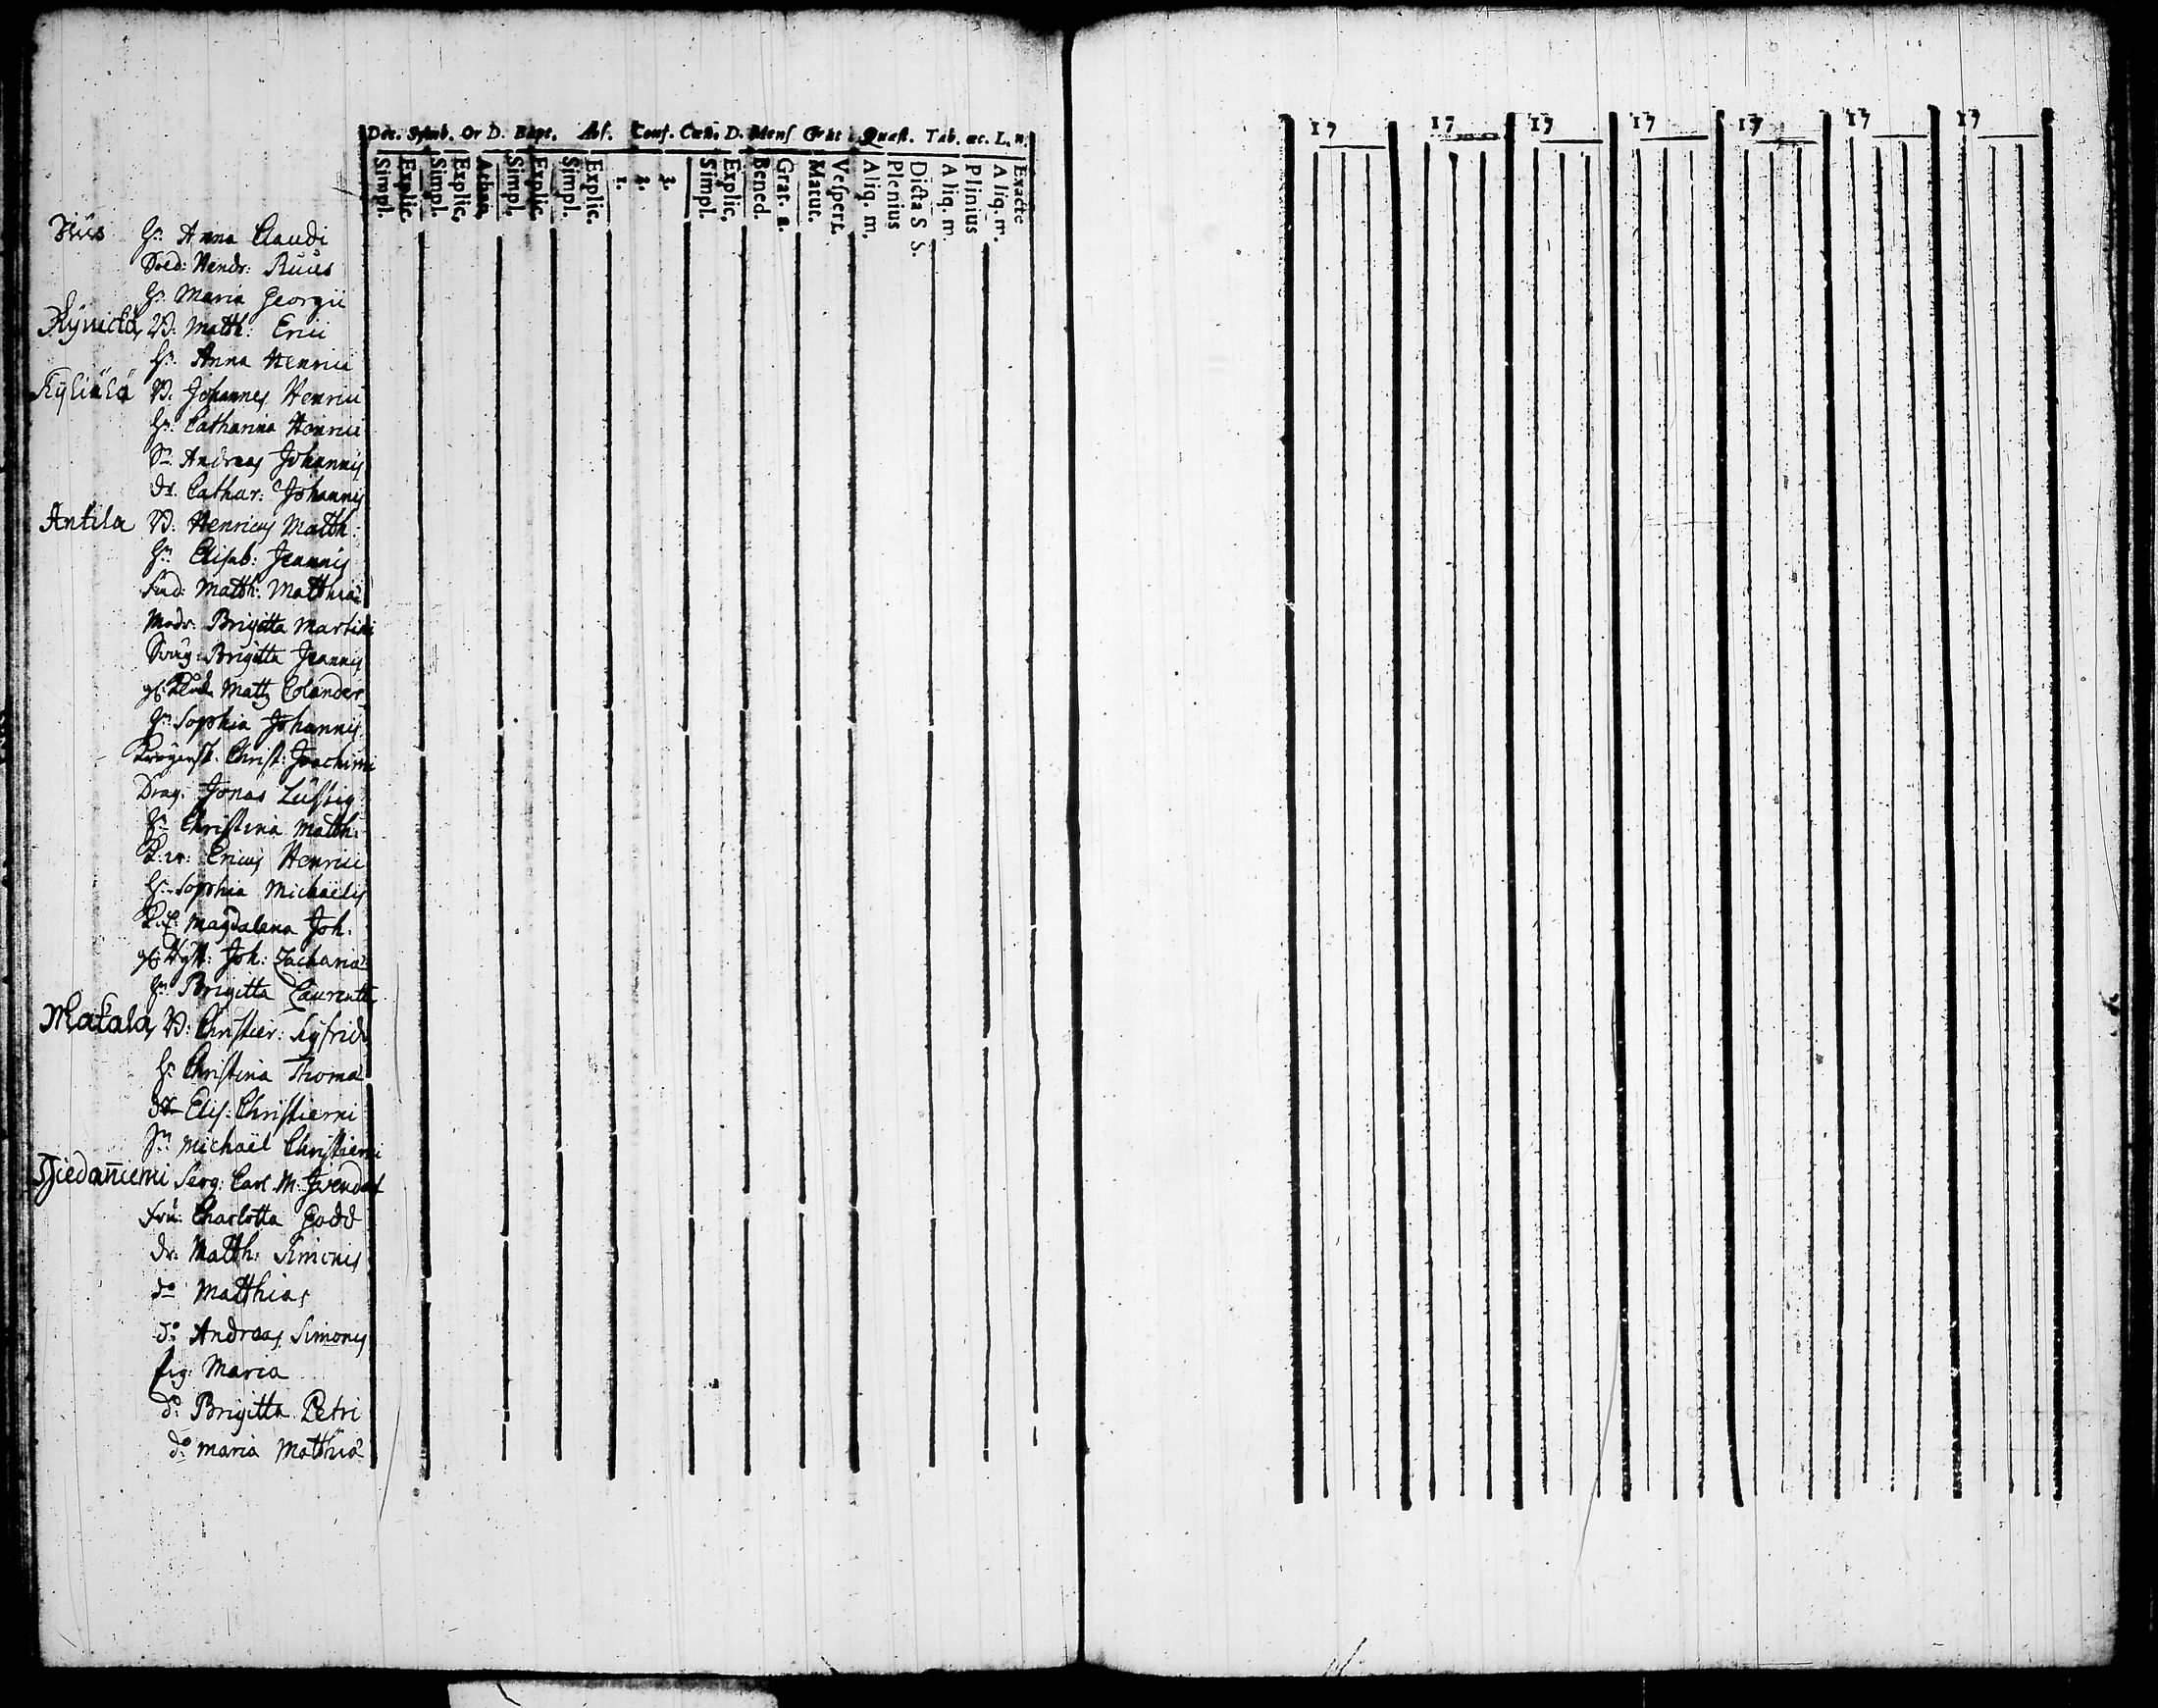 Dec. Symb. Or D. Bapt. Abs. Conf. Cœn. D. Mens Grat. Quæst. Tab. œc. L. n.
Simpl. Explic. Simpl. Explic. Athan. Simpl. Explic. Simpl. Explic. 1. 2. 3. Simpl. Explic. Bened. Grat. a. Matut. Vespert. Aliq. m. Plenius Dicta S S. Aliq. m. Plinius Aliq. m. Exacte
17 17 17 17 17 17 17
Hr. Anna Claudi
Sold: Hendr: Ruus
Hr. Maria Georgii
W. Matth: Erici
Hr. Anna Henrici
W. Johannes Henrici
Hr. Catharina Henrici
Sn. Andreas Johannis
dr. Cathar: Johannis
Antila W. Henricus Matth:
Hr. Elisab: Joannis
Matth: Matthiæ
Modr. Brigitta Martini
Brigitta Joannis
Matts Colander
Hr. Sophia Johannis
Christ: Joachimi
Drag. Jonas Lustig
Hr. Christina Matth:
Ericus Henrici
Hr. Sophia Michaelis
Magdalena Joh.
Joh: Zachariæ
Hr. Brigitta Laurentii
Makala W: Christier: Sigfrid
Hr. Christina Thomæ
dr. Elis: Christierni
Sn. Michaël Christierni
Serg: Carl M.
Fru: Charlotta Gadd
dr. Matth: Simonis
do Matthias
do Andreas Simonis
pig: Maria
do Brigitta Petri
do Maria Matthiæ